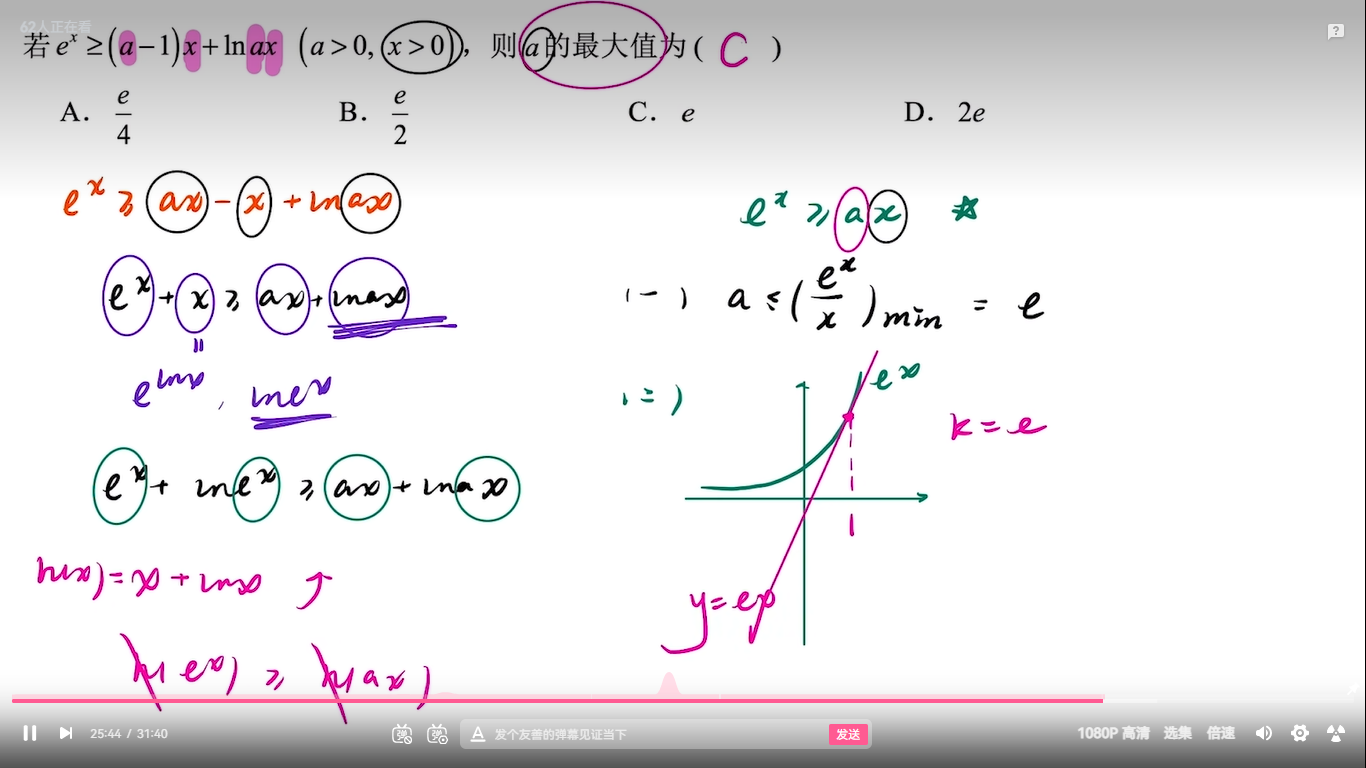 62人正在看
若 e^x ≥ (a−1)x + ln ax (a > 0, x > 0), 则 a 的最大值为 ( C )
A. e/4 B. e/2 C. e D. 2e
e^x ≥ ax − x + ln ax
e^x + x ≥ ax + ln ax
=
e^{ln x} , ln e^x
e^x + ln e^x ≥ ax + ln ax
h(x) = x + ln x ↑
h(e^x) ≥ h(ax)
e^x ≥ ax ☆
(一) a ≤ (e^x/x)min = e
(二)
e^x
k = e
1
y = ex
25:44 / 31:40
弹
弹
A 发个友善的弹幕见证当下 发送
1080P 高清 选集 倍速